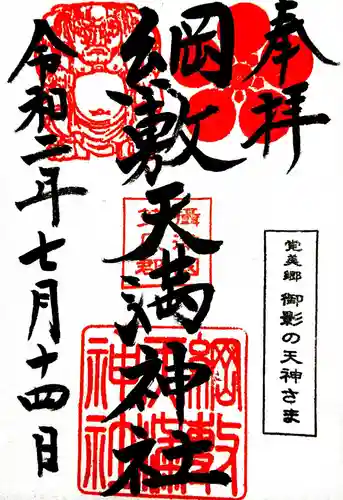 奉拝
綱敷天満神社
令和二年七月十四日
覚美郷 御影の天神さま
綱敷天満神社